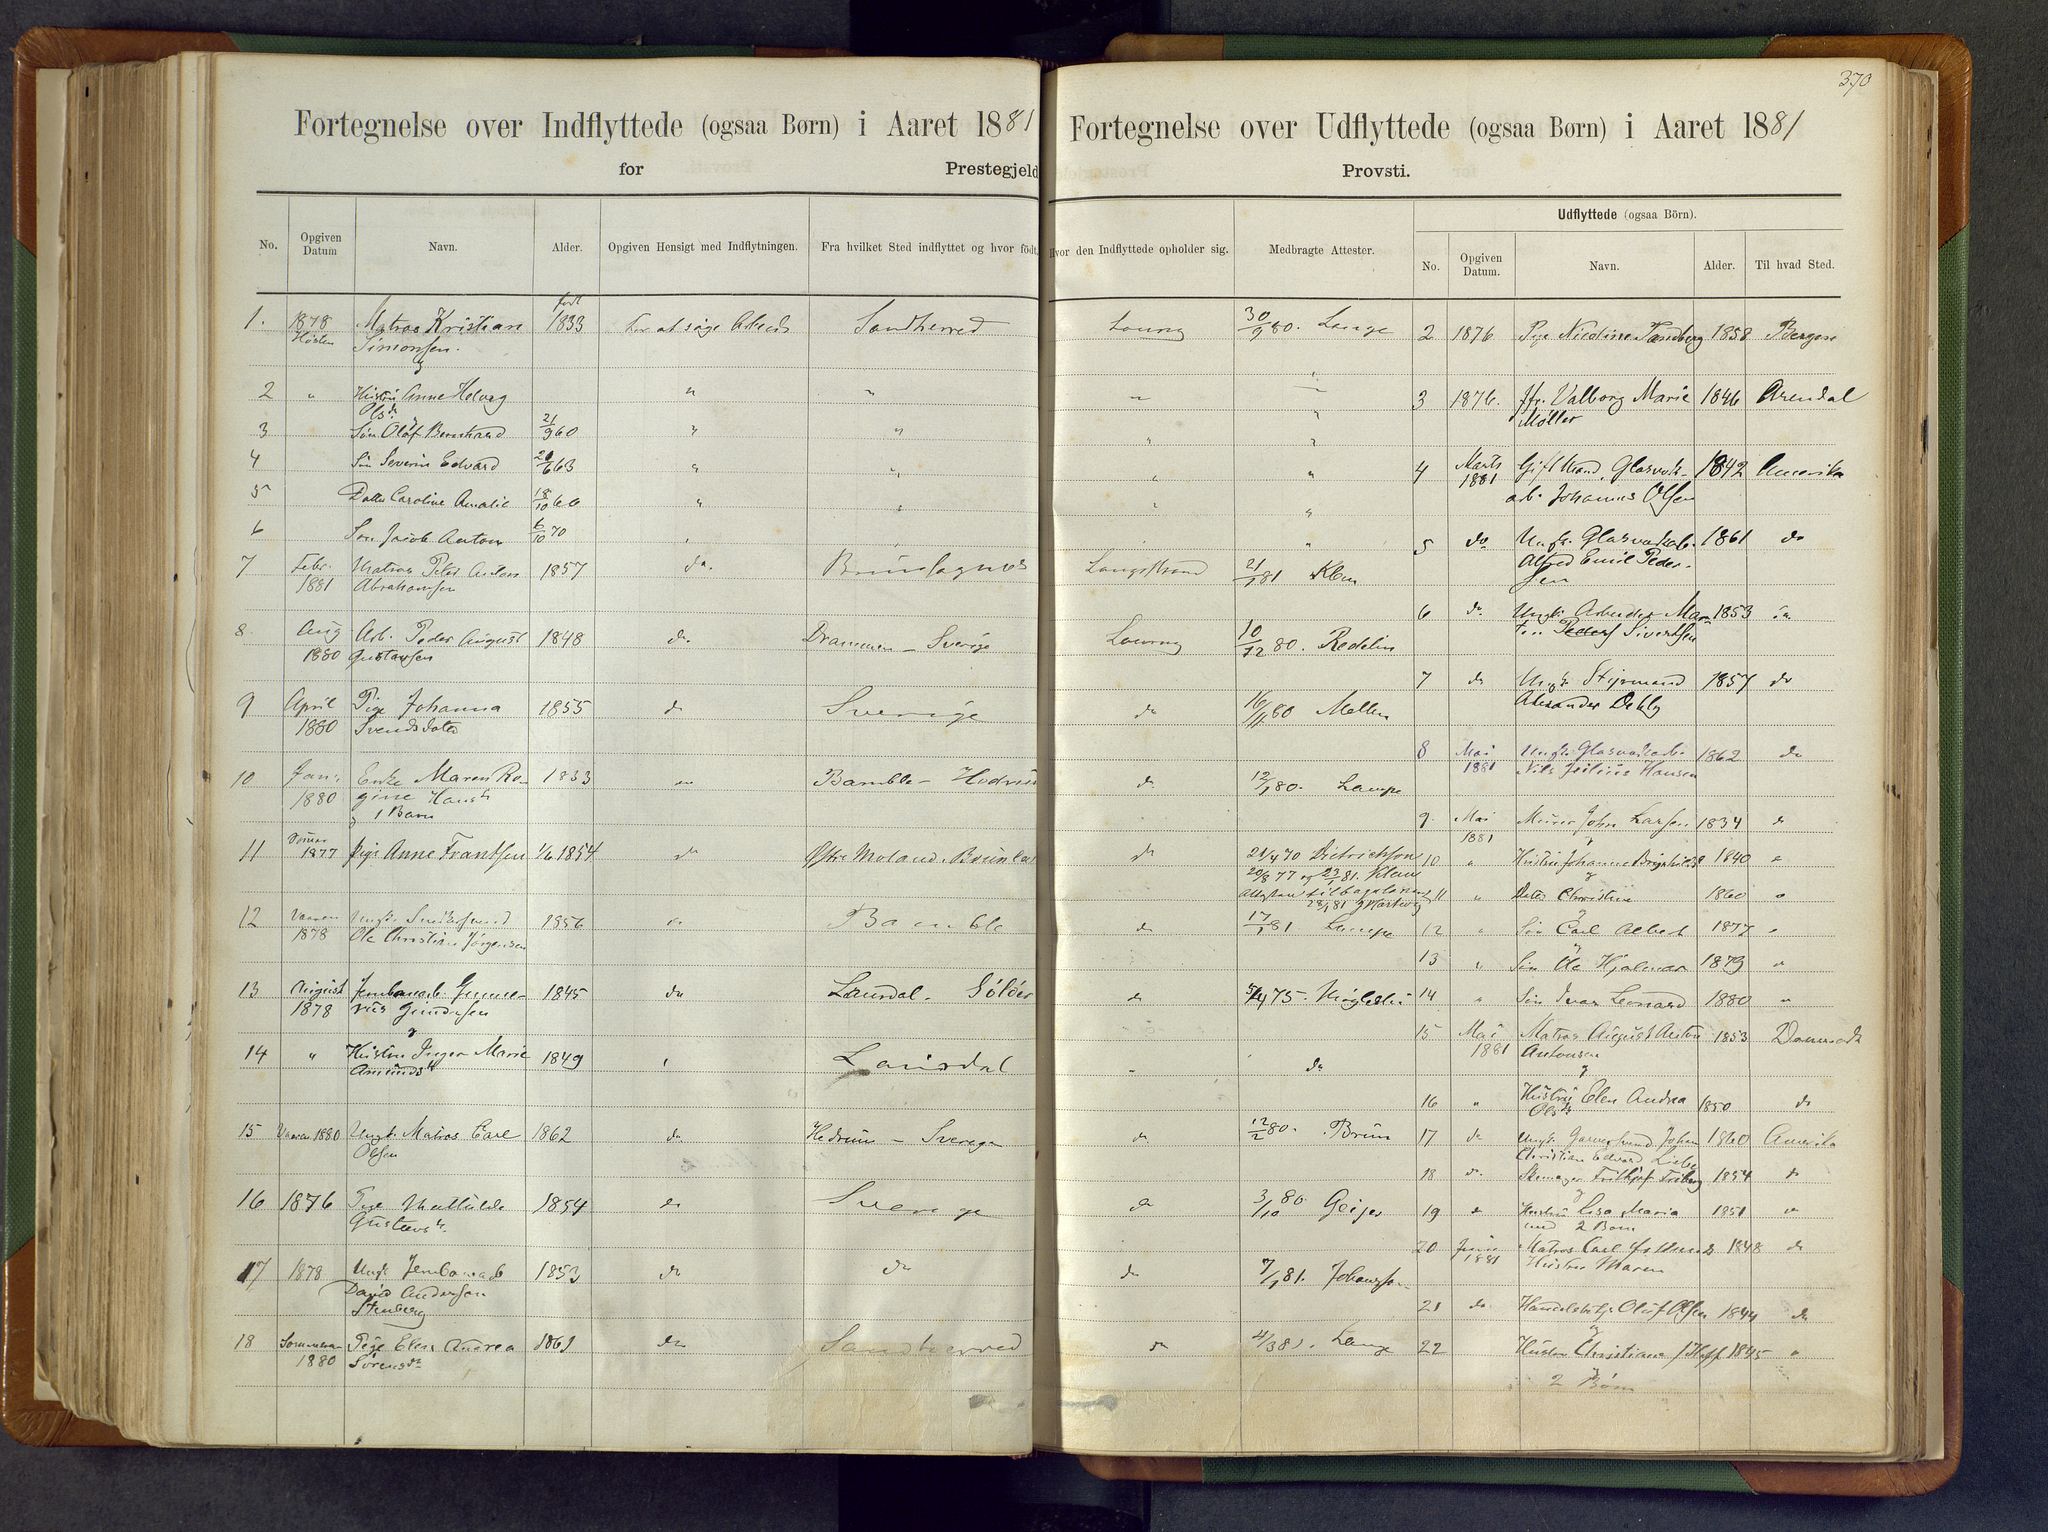 370
Fortegnelse over Indflyttede (ogsaa Børn) i Aaret 1881
for Prestegjeld
No. Opgiven Datum Navn. Alder. Opgiven Hensigt med Indflytningen. Fra hvilket Sted indflyttet og hvor født.
Fortegnelse over Udflyttede (ogsaa Børn) i Aaret 1881
Provsti.
Hvor den Indflyttede opholder sig. Medbragte Attester.
Udflyttede (ogsaa Börn).
No. Opgiven Datum. Navn. Alder. Til hvad Sted.
1. 1878 Matros Kristian født 1833 for at søge Arbeide Sandherred 30/9 80. Lange
Høsten Simonsen.
2 " Hustru Anne Helvig " "
Olsd.
3 Søn Olaf Bernhard 21/9 60 " "
4 Søn Severin Edvard 20/6 63 " "
5 Datter Caroline Amalie 18/10 66 " "
6 Søn Jacob Anton 6/10 70
7 Febr. Matros Peter Anton 1857 do. Langestrand 21/1 81 Klem
1881 Abrahamsen
8. Aug Arb. Peder August 1848 do. Drammen - Sverige 10/12 80. Redelin
1880 Gustavsen
9 April Pige Johanna 1855 do Sverige do 16/11 80
1880 Svendsdatter
10 Jan. Enke Maren Re- 1833 Bamble - Hedrum do 12/1 80. Lampe
1880 gine Hansd.
g 1 Barn
11 1877 Pige Anne Frantsen 1/6 1854 do Østre Moland. Brunla do 21/4 70 Dietrichson
20/8 77 og 23/1 81. Klem
28/1 81
12 Vaaren Ungk. 1856 Bamble do 17/1 81 Lampe
1878 Ole Christian Jørgensen
13 August Jernbanearb. Gunne- 1845 do Laurdal. do 5/4 75.
1878 rius Gundersen
14 " Hustru Inger Marie 1849 Laurdal do
Amundsd.
15 Vaaren 1880 Ungk. Matros Carl 1862 do Hedrum - Sverige do 12/2 80. Brun
Olsen
16 1876 Pige Mathilde 1854 do Sverige do 3/10 80. Geijer
Gustavsd.
17 1878 Ungk. Jernbanearb 1853 do do do 7/1 81. Johansson
David Anderson
Stenberg
18 Sommeren Pige Elen Andrea 1861 do Sandherred do 4/3 81. Lange
1880 Sørensdt
2 1876 Pige Nicoline Sandberg 1858 Bergen
3 1876. Valborg Marie 1846 Arendal
Møller
4 Marts Gift Mand, Glasværks- 1842 Amerika
1881 arb. Johannes Olsen
5 do Ungk. Glasværksarb. 1861 do
Alfred Emil Peder-
sen
6 do Ungk. Arbeider 1853 do
Peder Sivertsen
7 do Ungk. Styrmand 1857 do
Alexander Dehly
8 Mai Ungk. Glasværksarb. 1862 do
1881 Nils Julius Hansen
9. Mai Murer John Larsen 1834 do
1881
10 " Hustru Johanne 1840 "
11 " Datter Christine 1860 "
12 " Søn Carl Albert 1877 "
13 " Søn Ole Hjalmar 1879 "
14 " Søn Ivar Leonard 1880 "
15 Mai Matros August Anton 1853 Danmark
1881 Antonsen
16 " Hustru Elen Andrea 1850 do
Olsd.
17 do Ungk. Garversvend Johan 1860 Amerika
Christian Edvard
18 do. Fridthjof Friberg 1854 do
19 Hustru Lisa Maria 1851 do
med 2 Børn
20 Juni Matros Carl 1848 do
1881 Hustru Maren
21 do. Oluf Olsen 1844 do
22 Hustru Christiane 1845 "
2 Børn